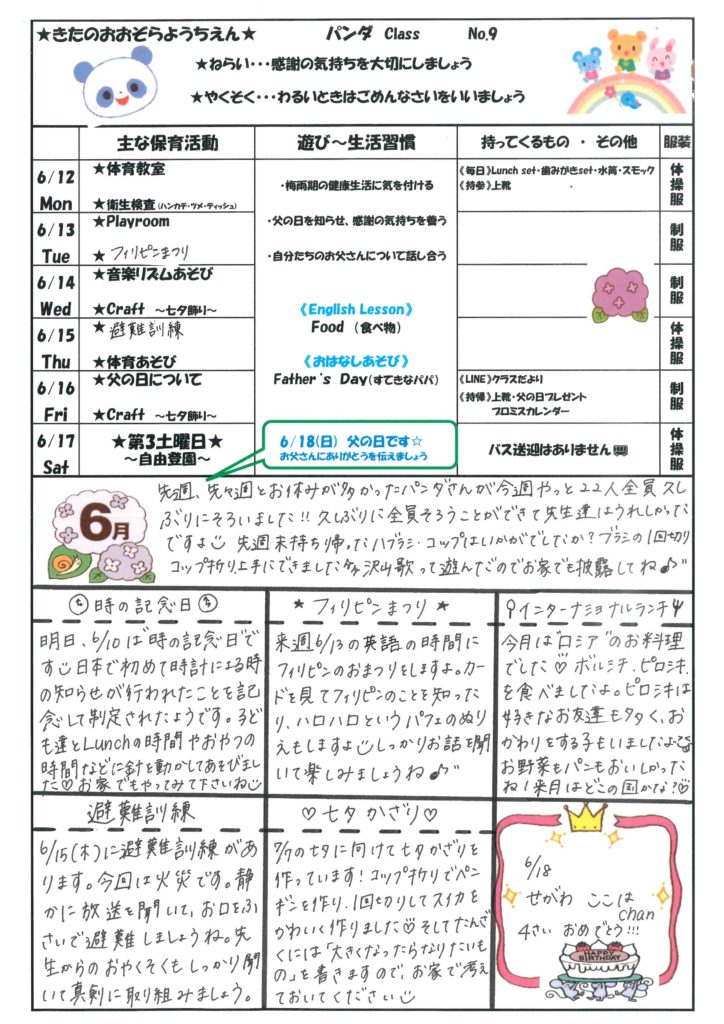 ★きたのおおぞらようちえん★ パンダ Class No.9
★ねらい・・・感謝の気持ちを大切にしましょう
★やくそく・・・わるいときはごめんなさいをいいましょう
主な保育活動 遊び～生活習慣 持ってくるもの ・ その他 服装
6/12 Mon
★体育教室
★衛生検査(ハンカチ・ツメ・ティッシュ)
・梅雨期の健康生活に気を付ける
《毎日》Lunch set・歯みがきset・水筒・スモック
《持参》上靴
体操服
6/13 Tue
★Playroom
★フィリピンまつり
・父の日を知らせ、感謝の気持ちを養う
・自分たちのお父さんについて話し合う
制服
6/14 Wed
★音楽リズムあそび
★Craft ～七夕飾り～
《English Lesson》
Food (食べ物)
制服
6/15 Thu
★避難訓練
★体育あそび
《おはなしあそび》
体操服
6/16 Fri
★父の日について
★Craft ～七夕飾り～
Father's Day(すてきなパパ)
《LINE》クラスだより
《持帰》上靴・父の日プレゼント
プロミスカレンダー
制服
6/17 Sat
★第3土曜日★
～自由登園～
6/18(日) 父の日です☆
お父さんにありがとうを伝えましょう
バス送迎はありません
体操服
6月
先週、先々週とお休みが多かったパンダさんが今週やっと22人全員久し
ぶりにそろいました!! 久しぶりに全員そろうことができて先生達はうれしかった
ですよ 先週末持ち帰ったハブラシ・コップはいかがでしたか? ブラシの1回切り
コップ折り上手にできました 沢山歌って遊んだのでお家でも披露してね♪"
時の記念日
明日、6/10は"時の記念日"で
す 日本で初めて時計による時
の知らせが行われたことを記
念して制定されたようです。子ど
も達とLunchの時間やおやつの
時間などに針を動かしてあそびまし
た♡お家でもやってみて下さいね
★フィリピンまつり★
来週6/13の英語の時間に
フィリピンのおまつりをしますよ。カー
ドを見てフィリピンのことを知った
り、ハロハロというパフェのぬり
えもしますよ しっかりお話を聞
いて楽しみましょうね♪"
インターナショナルランチ
今月は"ロシア"のお料理
でした♡ ボルシチ、ピロシキ
を食べましたよ。ピロシキは
好きなお友達も多く、お
かわりをする子もいましたよ
お野菜もパンもおいしかった
ね!来月はどこの国かな?♡
避難訓練
6/15(木)に避難訓練があ
ります。今回は火災です。静
かに放送を聞いて、お口をふ
さいで避難しましょうね。先
生からのおやくそくもしっかり聞
いて真剣に取り組みましょう。
♡七夕かざり♡
7/7の七夕に向けて七夕かざりを
作っています! コップ折りでペン
ギンを作り、1回切りしてスイカを
かわいく作りました♡そしてたんざ
くには「大きくなったらなりたいも
の」を書きますので、お家で考え
ておいてください
6/18
せがわ ここは
chan
4さい おめでとう!!!
HAPPY
BIRTHDAY